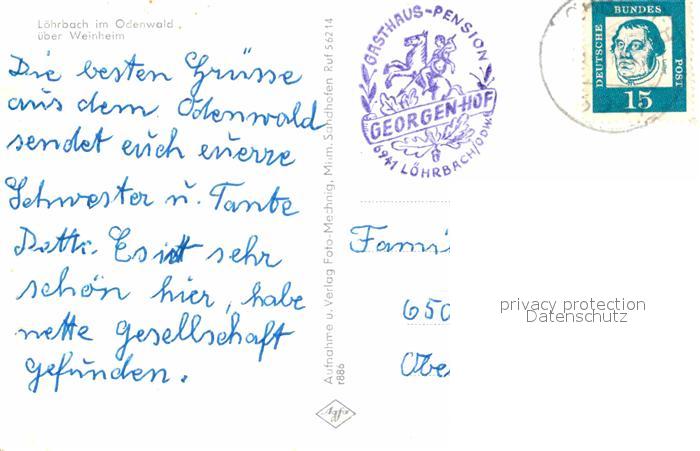 Löhrbach im Odenwald
über Weinheim
Die besten Grüsse
aus dem Odenwald
sendet euch euerre
Schwester u. Tante
Es ist sehr
schön hier, habe
nette gesellschaft
gefunden.
Aufnahme u. Verlag Foto-Mechnig, Mhm. Sandhofen Ruf 56214
r886
Agfa
GASTHAUS-PENSION
GEORGEN-HOF
6941 LÖHRBACH/ODW.
DEUTSCHE
BUNDES
POST
15
Fami
650
Obe
privacy protection
Datenschutz